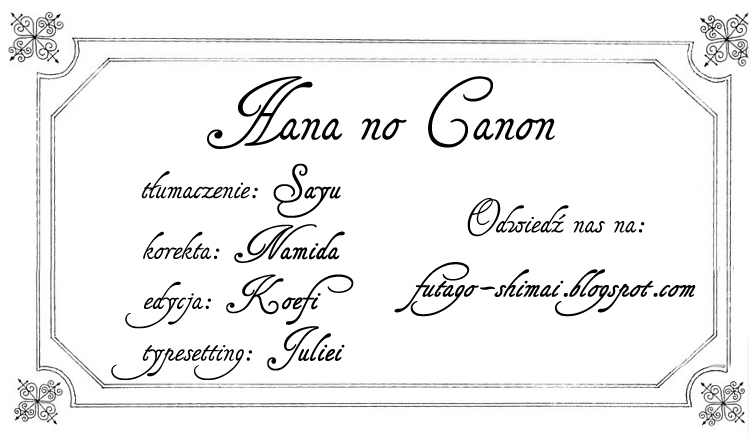 Hana no Canon
tłumaczenie: Sayu
korekta: Namida
edycja: Koefi
typesetting: Juliei
Odwiedź nas na:
futago-shimai.blogspot.com